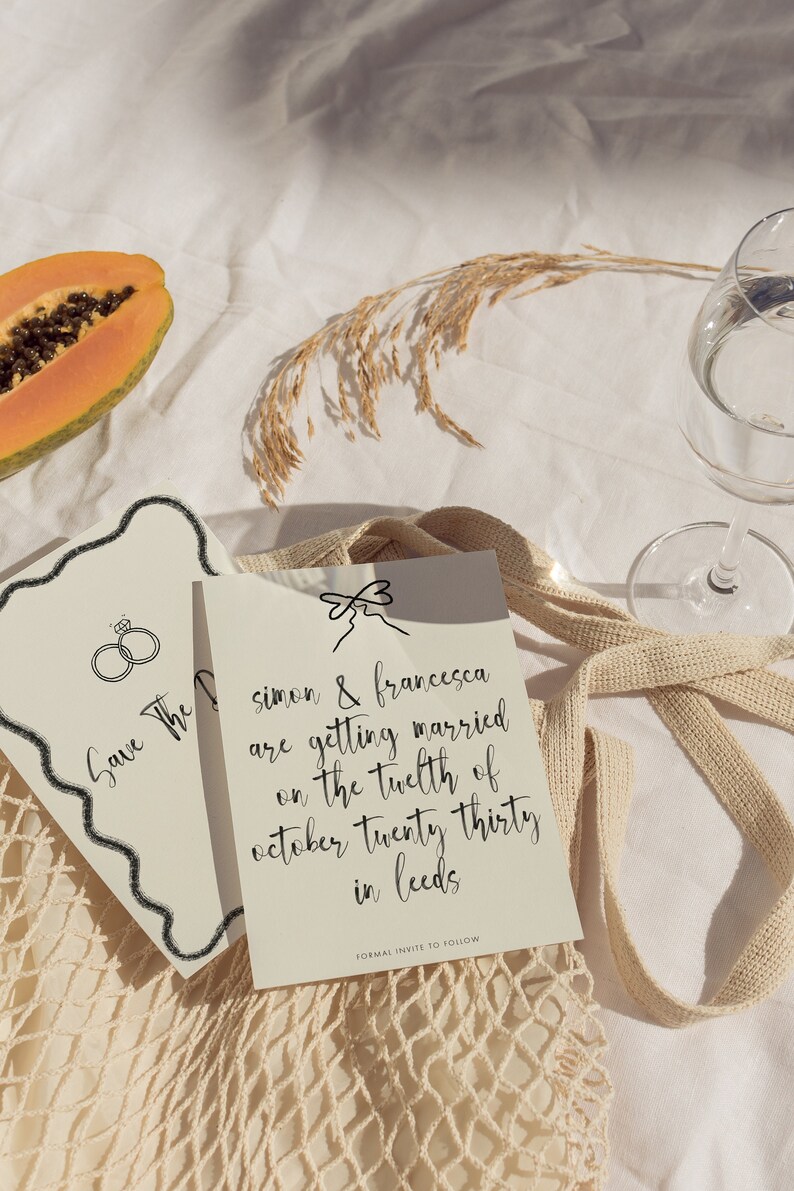 Save The D
simon & francesca
are getting married
on the twelth of
october twenty thirty
in leeds
FORMAL INVITE TO FOLLOW